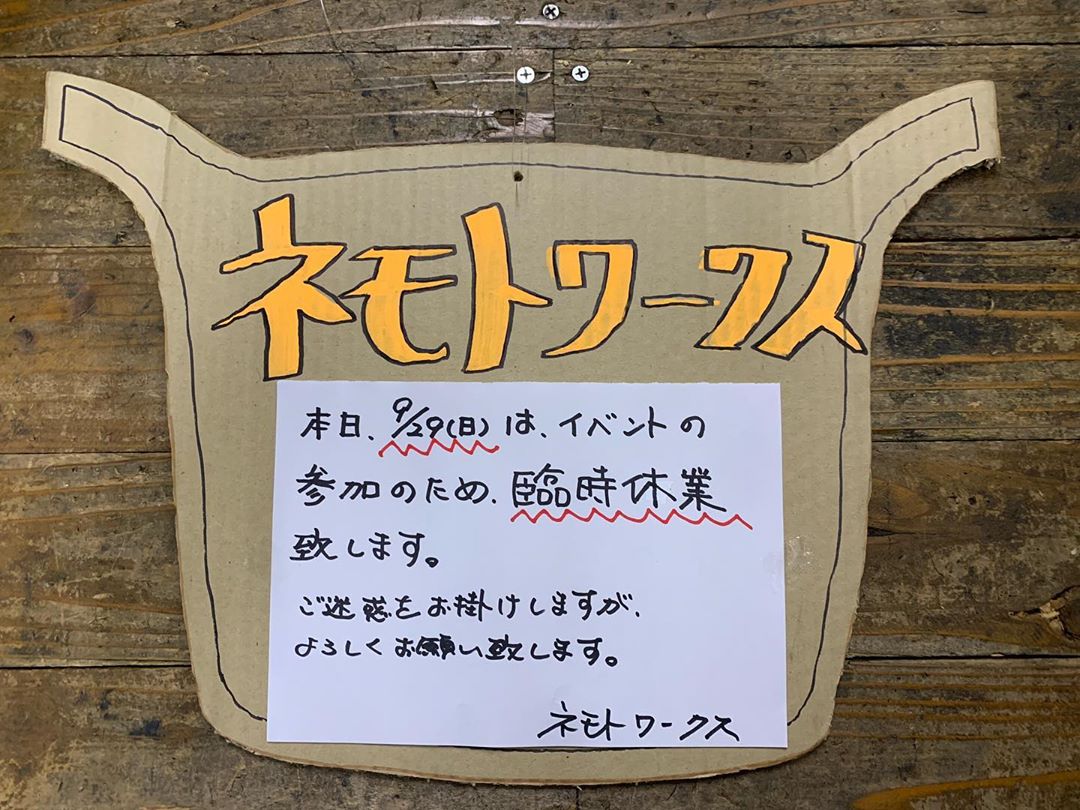 ネモトワークス
本日、9/29(日)は、イベントの
参加のため、臨時休業
致します。
ご迷惑をお掛けしますが、
よろしくお願い致します。
ネモトワークス